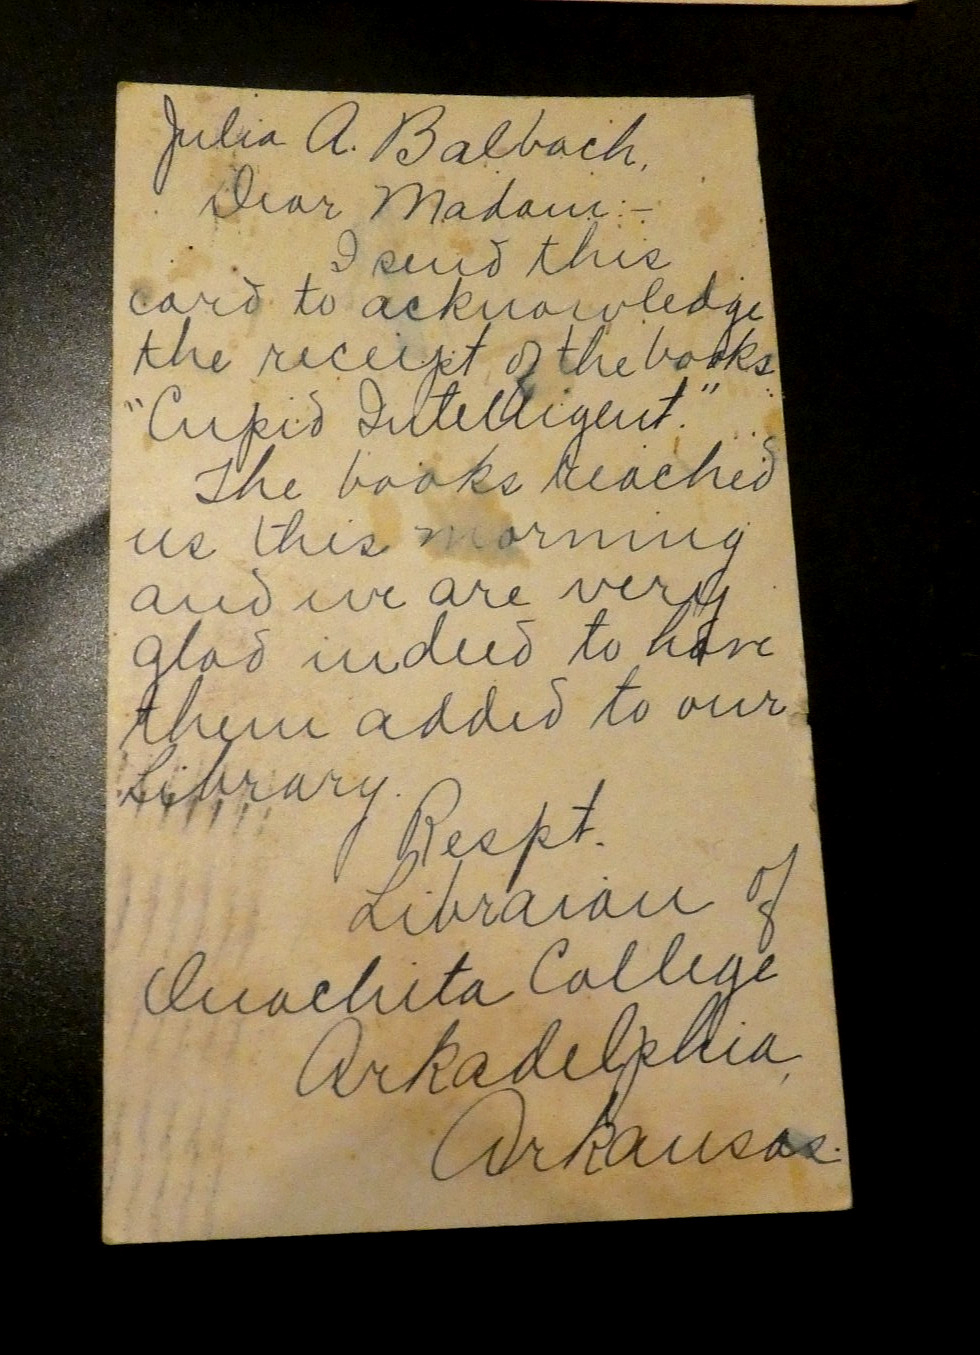 Julia A. Balbach,
Dear Madam:-
I send this
card to acknowledge
the receipt of the books
"Cupid Intelligent."
The books reached
us this morning
and we are very
glad indeed to have
them added to our
Library.
Respt.
Libraian of
Ouachita College
Arkadelphia,
Arkansas.